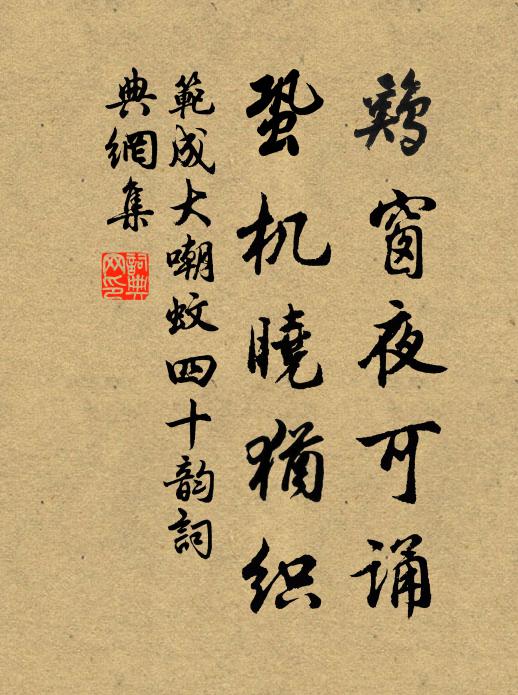 鷄窗夜可诵
蛩机曉猶织
範成大嘲蚊四十韵詞
典網集
詞典网印